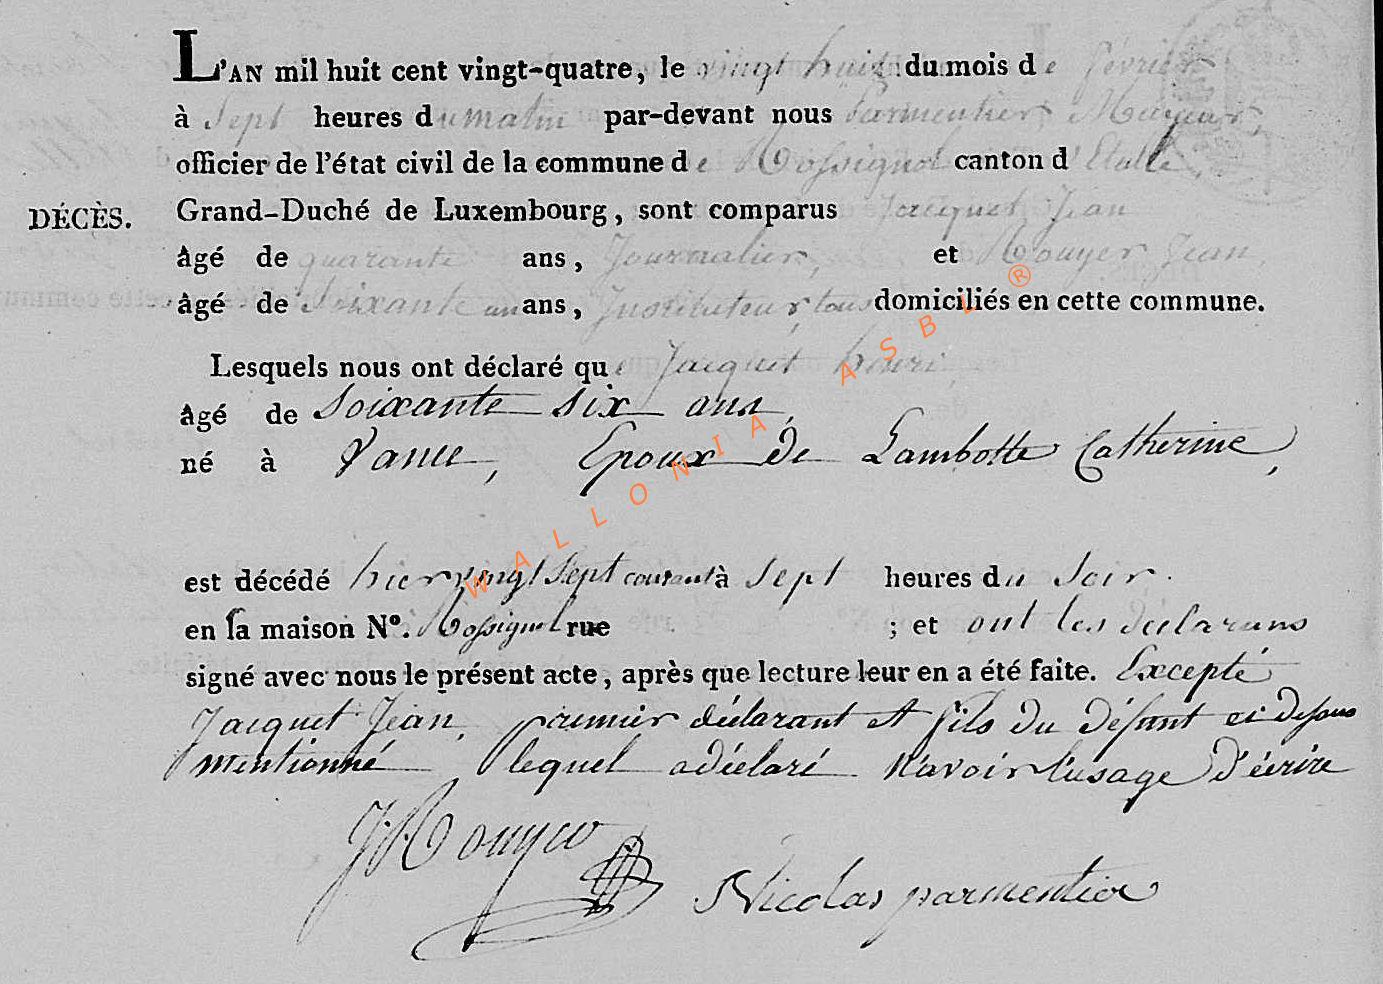 L'AN mil huit cent vingt-quatre, le vingt huit du mois de février
à Sept heures du matin par-devant nous Parmentier, Mayeur,
officier de l'état civil de la commune de Rossignol canton d'Etalle,
DÉCÈS.
Grand-Duché de Luxembourg, sont comparus Jacquet Jean
âgé de quarante ans, Journalier, et Rouyer Jean
âgé de Soixante un ans, Instituteur, tous domiciliés en cette commune.
Lesquels nous ont déclaré que Jacquet henri,
âgé de Soixante six ans,
né à Vance, Epoux de Lambotte Catherine,
est décédé hier vingt Sept courant à Sept heures du Soir.
en sa maison N°. Rossignol rue ; et ont les déclarans
signé avec nous le présent acte, après que lecture leur en a été faite. Excepté
Jacquet Jean, premier déclarant et fils du Défunt ci dessus
mentionné lequel a déclaré n'avoir l'usage D'écrire
J. Rouyer
Nicolas parmentier
WALLONIA ASBL ®